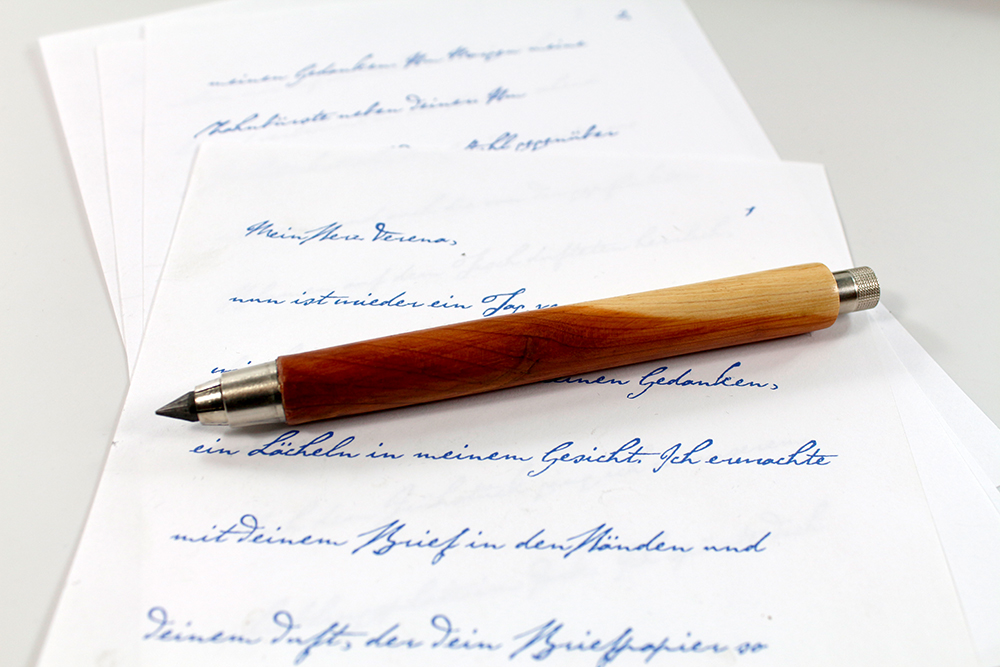 2
meinen Gedanken. Am Morgen meine
Zahnbürste neben deiner. Am
gegenüber
1
Mein Herz Verena,
nun ist wieder ein Tag
meinen Gedanken,
ein Lächeln in meinem Gesicht. Ich erwachte
mit deinem Brief in den Händen und
deinem Duft, der dein Briefpapier so